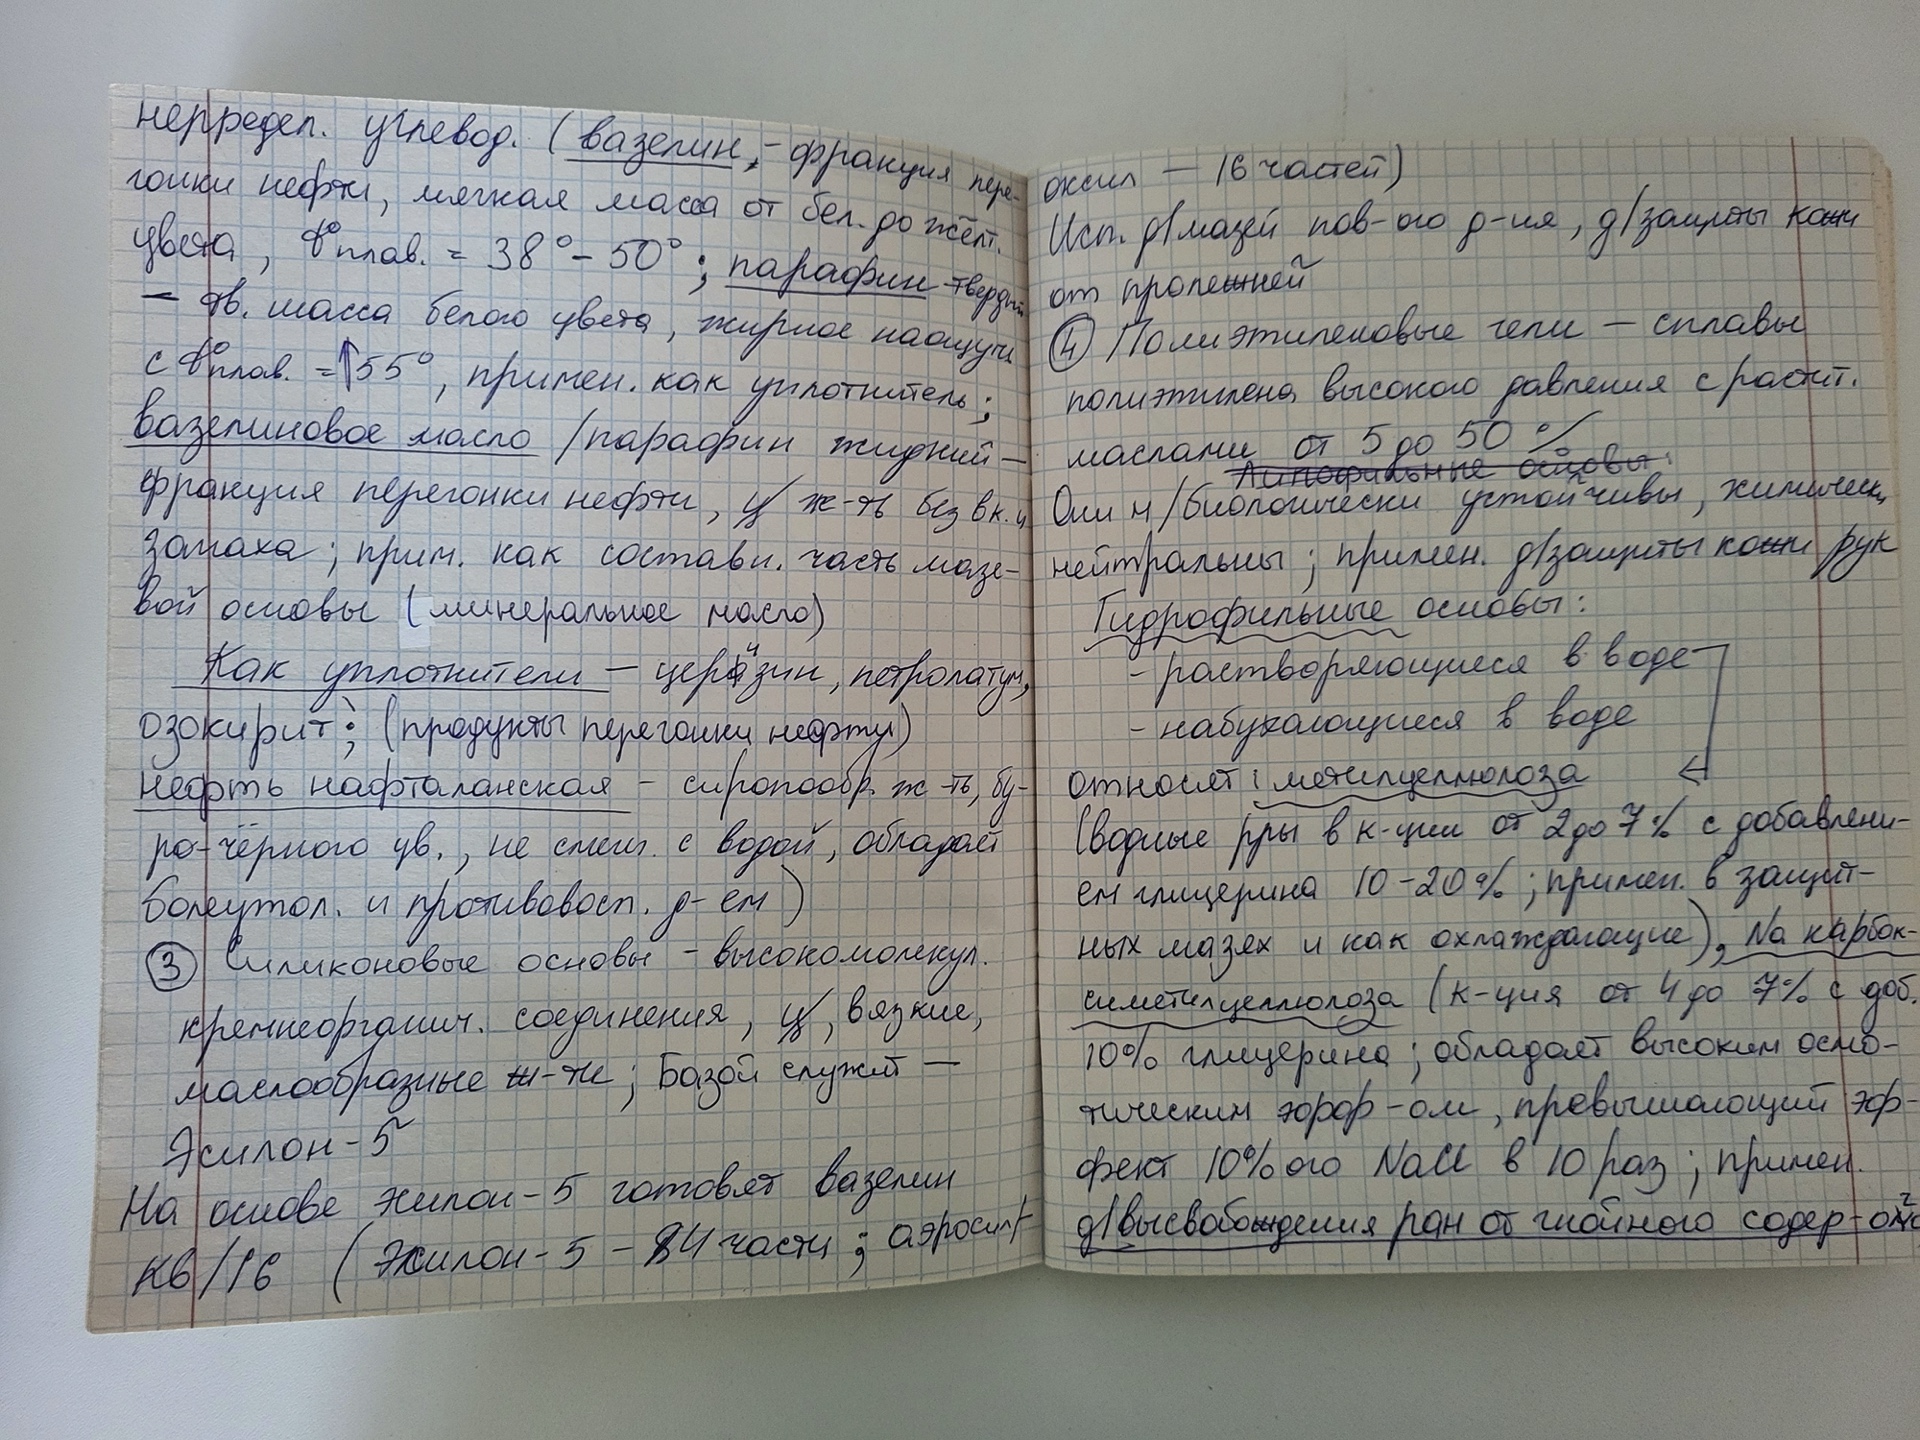 непредел. углевод. (вазелин, – фракция пере-
гонки нефти, мягкая масса от бел. до жёлт.
цвета, t°плав. = 38° – 50°; парафин твердый
– тв. масса белого цвета, жирное наощупь
с t°плав. = ↑55°, примен. как уплотнитель;
вазелиновое масло /парафин жидкий –
фракция перегонки нефти, ж-ть без вк. и
запаха; прим. как составн. часть мазе-
вой основы (минеральное масло)
Как уплотнители – церезин, петролатум,
озокирит; (продукты перегонки нефти)
нефть нафталанская – сиропообр. ж-ть, бу-
ро-чёрного цв., не смеш. с водой, обладает
болеутол. и противовосп. д-ем)
③ Силиконовые основы – высокомолекул.
кремнеорганич. соединения, вязкие,
маслообразные ж-ти; Базой служит –
Эсилон-5
На основе эсилон-5 готовят вазелин
КВ/16 (Эсилон-5 – 84 части; аэросил
оксил – 16 частей)
Исп. д/мазей пов-ого д-ия, д/защиты кожи
от пролежней
④ Полиэтиленовые гели – сплавы
полиэтилена высокого давления с растит.
маслами от 5 до 50 %
Липофильные основы:
Они н/биологически устойчивы, химически
нейтральны; примен. д/защиты кожи рук
Гидрофильные основы:
- растворяющиеся в воде
- набухающиеся в воде
относят: метилцеллюлоза
(водные рры в к-ции от 2 до 7% с добавлени-
ем глицерина 10-20%; примен. в защит-
ных мазях и как охлаждающие), Na карбок-
симетилцеллюлоза (к-ция от 4 до 7% с доб.
10% глицерина; обладает высоким осмо-
тическим эффр-ом, превышающий эф-
фект 10%ого NaCl в 10 раз; примен.
д/высвобождения ран от гнойного содер-ого